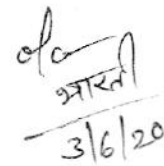 भारती
3/6/20